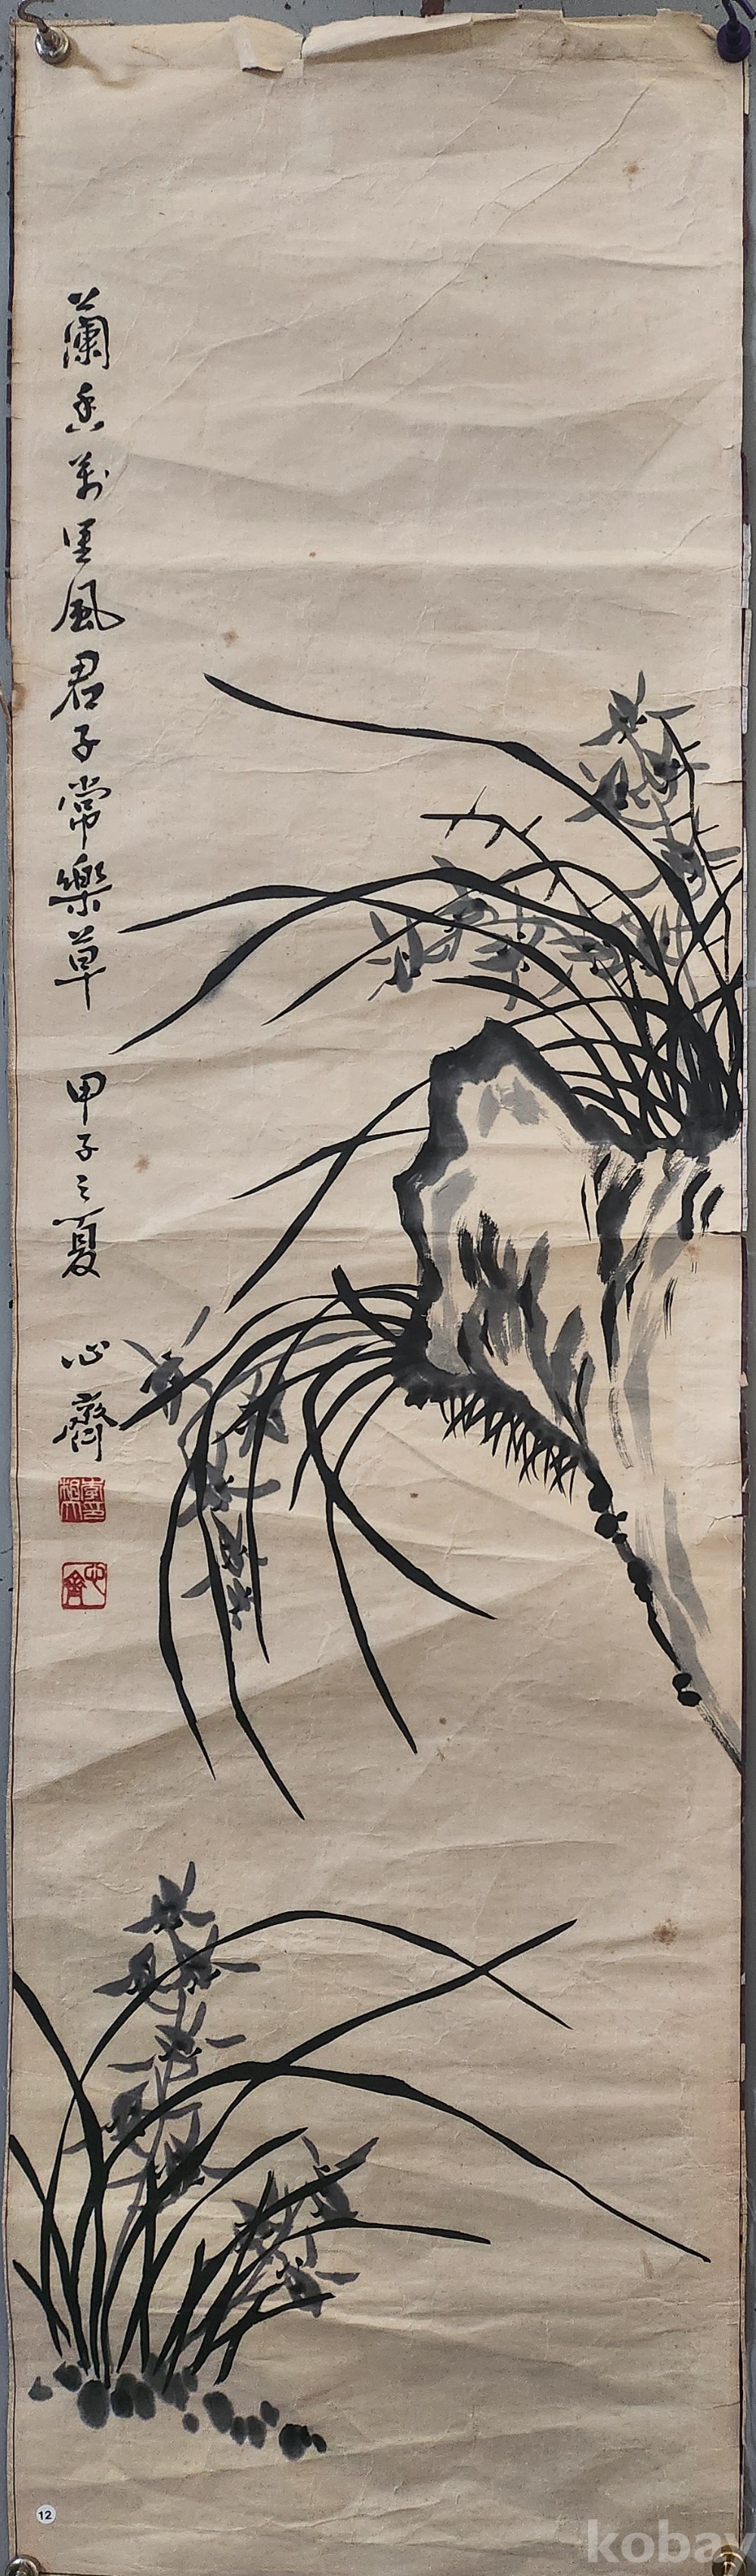 蘭香萬里風君子常樂草 甲子之夏 心齋
心齋
12
kobay